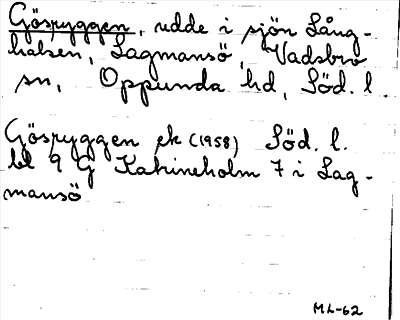 Gösryggen, udde i sjön Lång-
halsen, Lagmansö, Vadsbro
sn, Oppunda hd, Söd. l.
Gösryggen ek (1958) Söd. l.
bl 9 G Katrineholm 7 i Lag-
mansö
ML-62